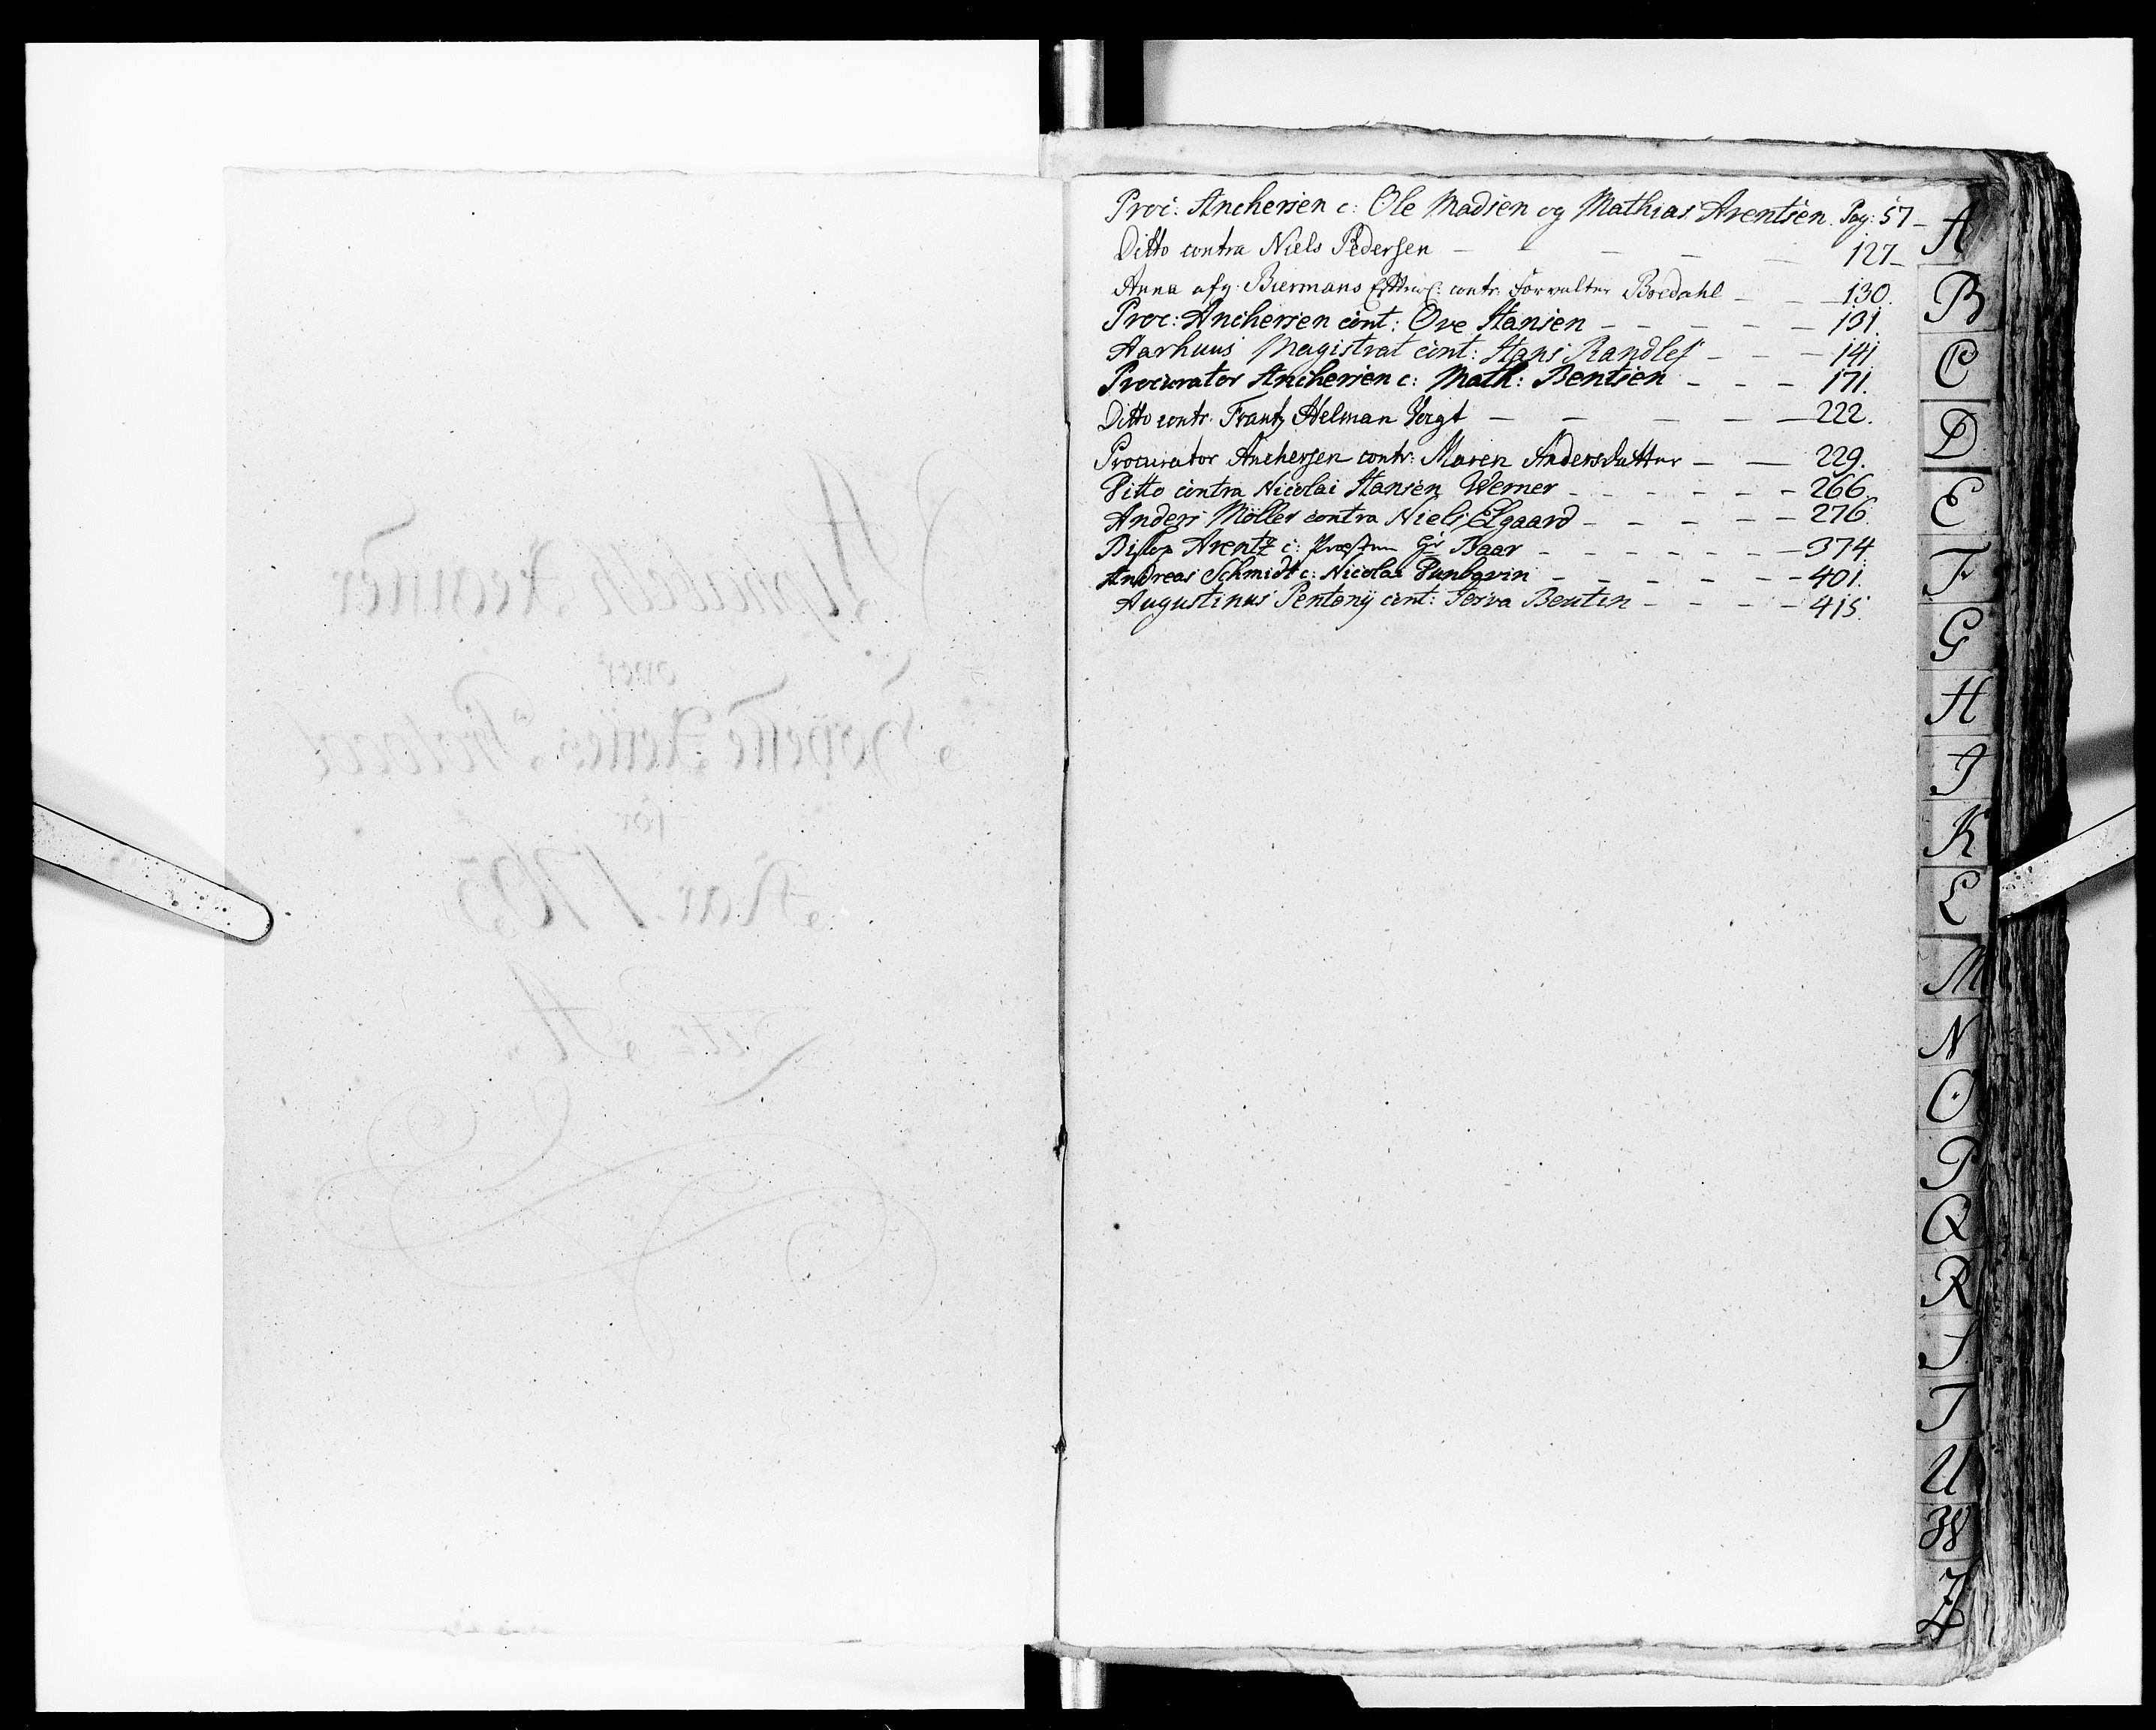 Proc: Anchersen c: Ole Madsen og Mathias Arentsen. Pag: 57
Ditto contra Niels Pedersen 127
Anna afg: Biermans contr: Forvalter Bredahl 130.
Proc: Anchersen cont: Ove Hansen 131.
Aarhuus Magistrat cont: Hans Randlef 141.
Procurator Anchersen c: Math: Bentsen 171.
Ditto contr: Frantz Helman Voigt 222.
Procurator Anchersen contr: Maren Andersdatter 229.
Ditto contra Nicolai Hansen Werner 266.
Anders Möller contra Niels Elgaard 276.
Bisp Arentz c: Præsten Baar 374.
Andreas Schmidt c: Nicolai 401.
Augustinus cont: 415.
A
B
C
D
E
F
G
H
I
K
L
M
N
O
P
Q
R
S
T
U
W
Z